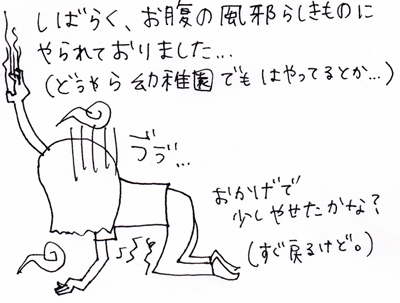 しばらく、お腹の風邪らしきものに
やられておりました...
(どうやら幼稚園でもはやってるとか...)
ブヴ...
おかげで
少しやせたかな?
(すぐ戻るけど。)